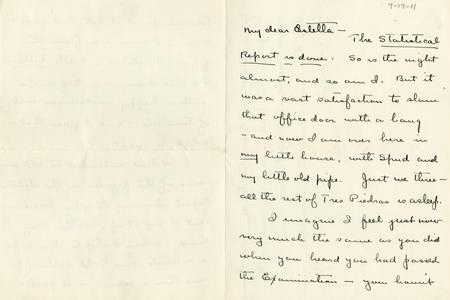 7-17-11
My dear Estella –
The Statistical
Report is done. So is the night
almost, and so am I. But it
was a vast satisfaction to slam
that office door with a bang
– and now I am over here in
my little house, with Spud and
my little old pipe. Just we three –
all the rest of Tres Piedras is asleep.
I imagine I feel just now
very much the same as you did
when you heard you had passed
the Examination – you havn't